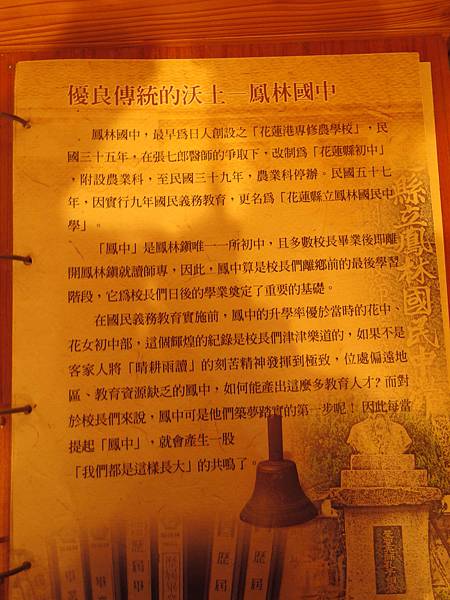 優良傳統的沃土—鳳林國中
鳳林國中，最早為日人創設之「花蓮港專修農學校」，民
國三十五年，在張七郎醫師的爭取下，改制為「花蓮縣初中」
，附設農業科，至民國三十九年，農業科停辦。民國五十七
年，因實行九年國民義務教育，更名為「花蓮縣立鳳林國民中
學」。
「鳳中」是鳳林鎮唯一一所初中，且多數校長畢業後即離
開鳳林鎮就讀師專，因此，鳳中算是校長們離鄉前的最後學習
階段，它為校長們日後的學業奠定了重要的基礎。
在國民義務教育實施前，鳳中的升學率優於當時的花中、
花女初中部，這個輝煌的紀錄是校長們津津樂道的，如果不是
客家人將「晴耕雨讀」的刻苦精神發揮到極致，位處偏遠地
區、教育資源缺乏的鳳中，如何能產出這麼多教育人才？而對
於校長們來說，鳳中可是他們築夢踏實的第一步呢！因此每當
提起「鳳中」，就會產生一股
「我們都是這樣長大」的共鳴了。
縣立鳳林國民
歷屆畢
歷屆
歷屆